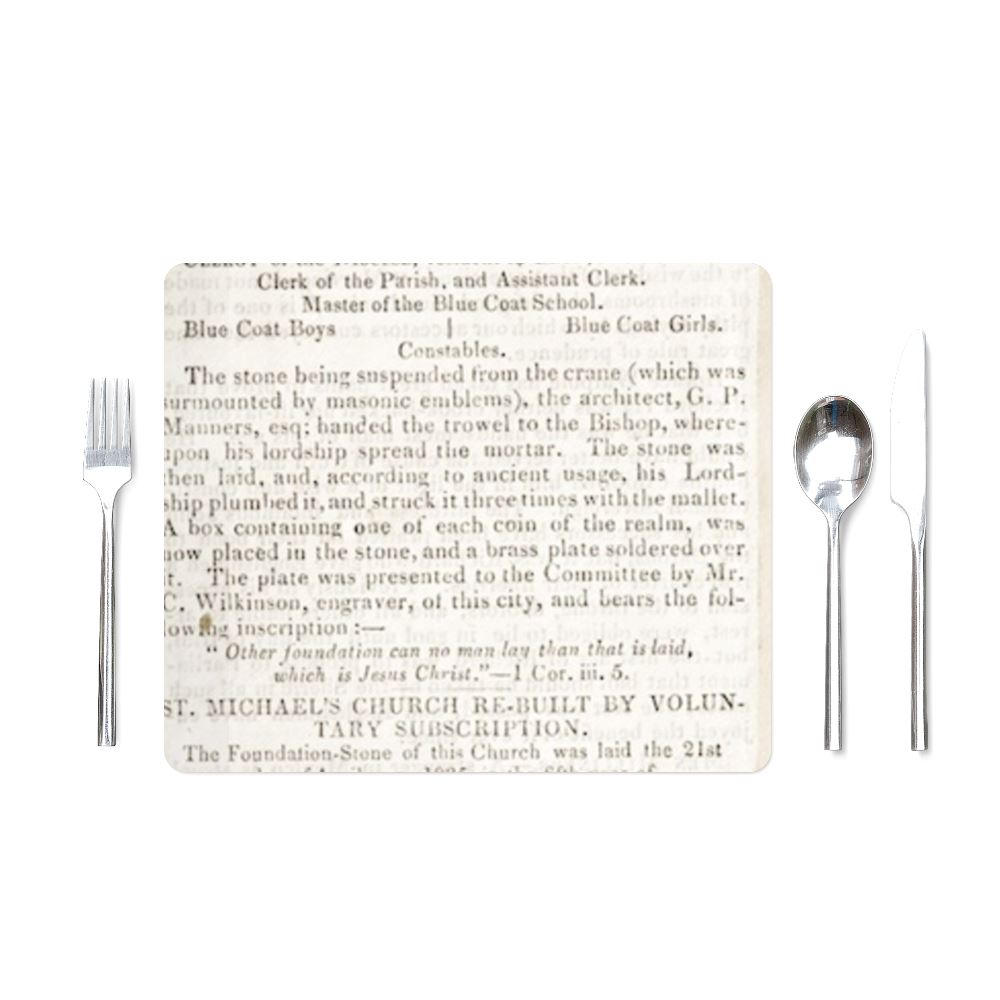 Clerk of the Parish, and Assistant Clerk.
Master of the Blue Coat School.
Blue Coat Boys | Blue Coat Girls.
Constables.
The stone being suspended from the crane (which was
surmounted by masonic emblems), the architect, G. P.
Manners, esq; handed the trowel to the Bishop, where-
upon his lordship spread the mortar. The stone was
then laid, and, according to ancient usage, his Lord-
ship plumbed it, and struck it three times with the mallet.
A box containing one of each coin of the realm, was
now placed in the stone, and a brass plate soldered over
it. The plate was presented to the Committee by Mr.
C. Wilkinson, engraver, of this city, and bears the fol-
lowing inscription :—
“ Other foundation can no man lay than that is laid,
which is Jesus Christ.”—1 Cor. iii. 5.
ST. MICHAEL'S CHURCH RE-BUILT BY VOLUN-
TARY SUBSCRIPTION.
The Foundation-Stone of this Church was laid the 21st